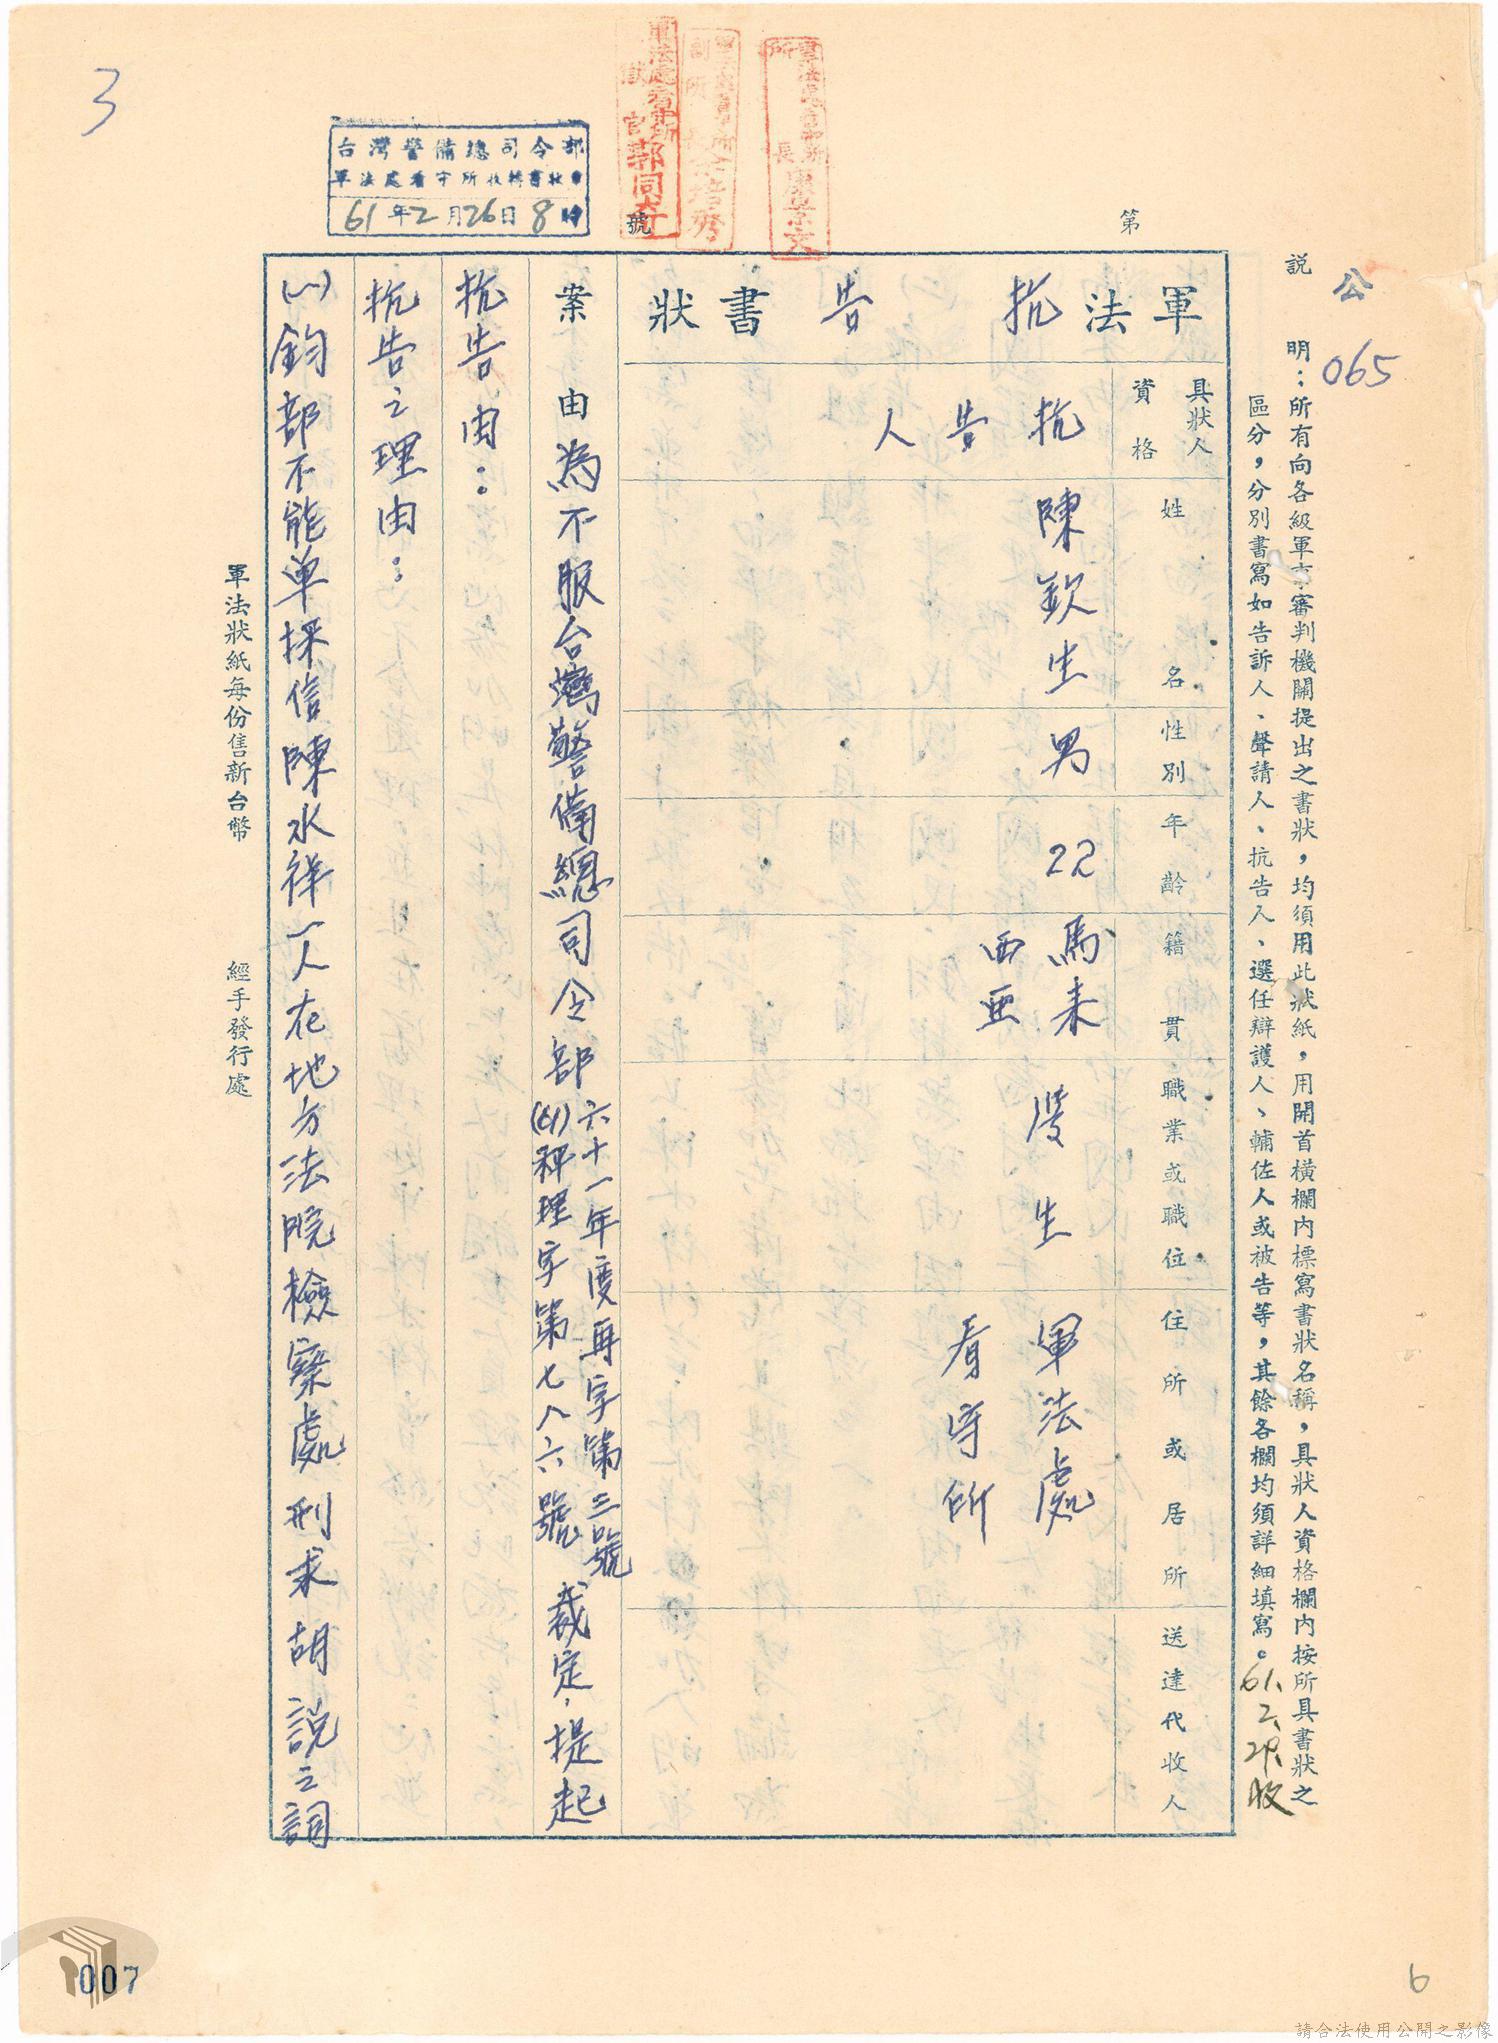 3
台灣警備總司令部
軍法處看守所收轉書狀章
61年2月26日8時
號
第
公
065
說明：所有向各級軍事審判機關提出之書狀，均須用此狀紙，用開首橫欄內標寫書狀名稱，具狀人資格欄內按所具書狀之
區分，分別書寫如告訴人、聲請人、抗告人、選任辯護人、輔佐人或被告等，其餘各欄均須詳細填寫。
61.2.28.收
軍法抗告書狀
具狀人資格
抗告人
姓名
陳欽生
性別
男
年齡
22
籍貫
馬來西亜
職業或職位
學生
住所或居所
軍法處看守所
送達代收人
案由為不服台灣警備總司令部六十一年度再字第三號
(61)秤理字第七八六號裁定，提起
抗告由：
抗告之理由：
(一)鈞部不能单採信陳水祥一人在地方法院檢察處刑求胡說之詞
軍法狀紙每份售新台幣
經手發行處
007
6
請合法使用公開之影像